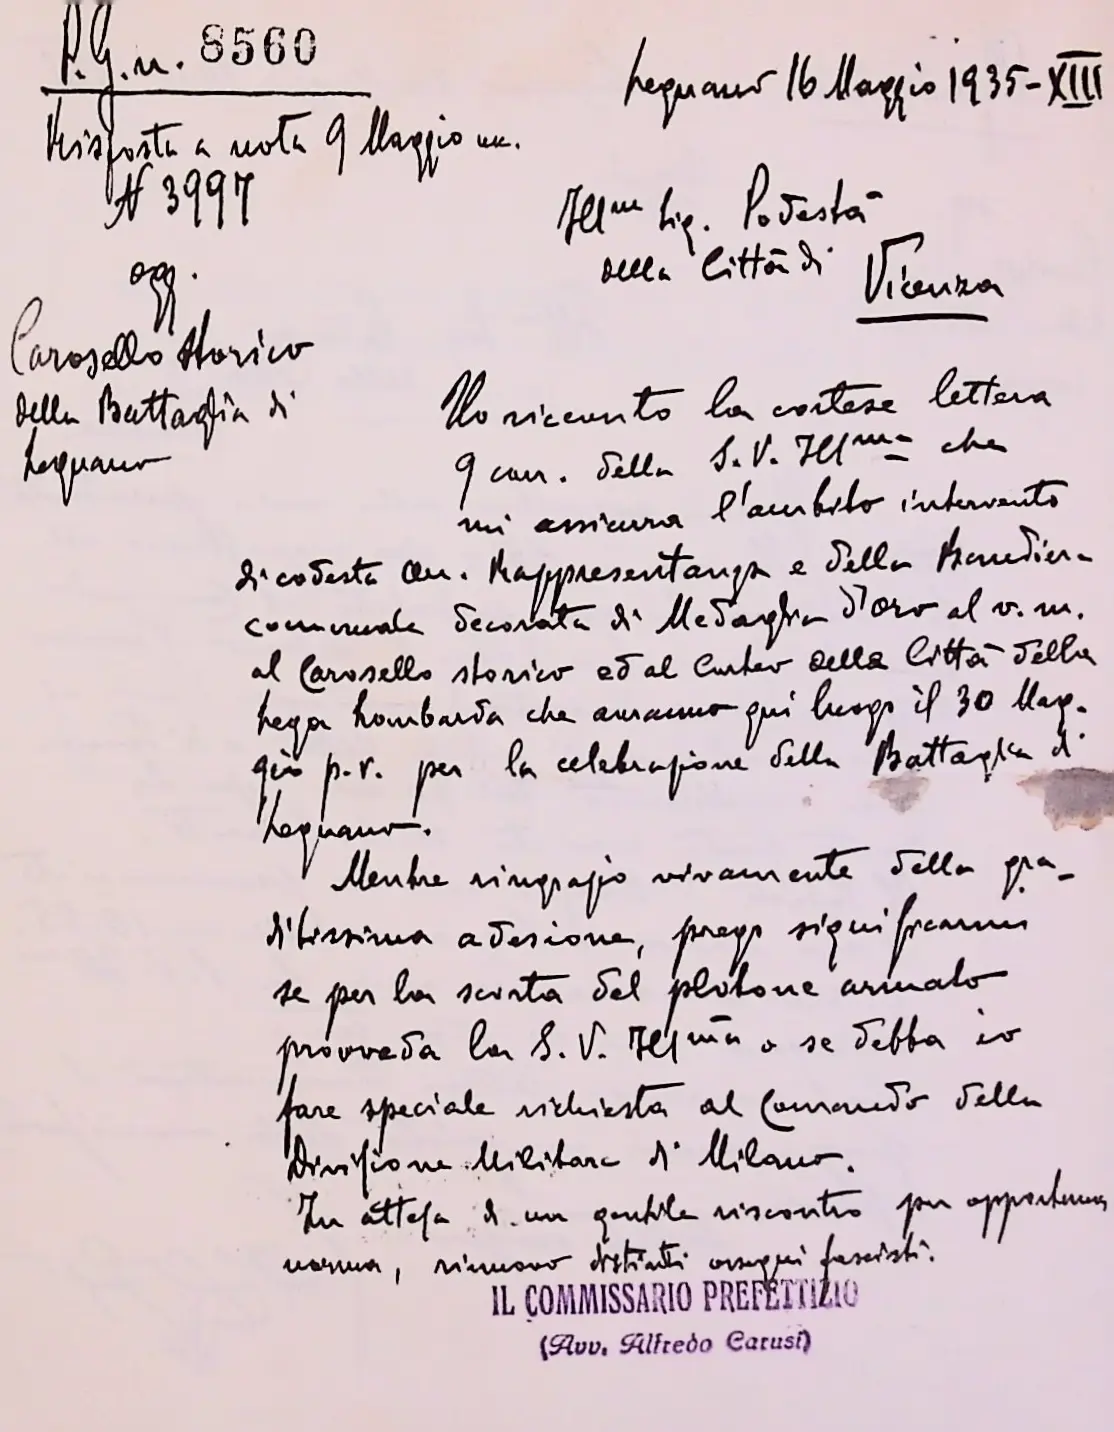 P.G.n. 8560
Legnano 16 Maggio 1935-XIII
Risposta a nota 9 Maggio uc.
N 3997
Ill.mo Sig. Podestà
della Città di
Vicenza
ogg.
Carosello Storico
della Battaglia di
Legnano
Ho ricevuto la cortese lettera
9 corr. della S.V. Ill.ma che
mi assicura l'ambito intervento
di codesta On. Rappresentanza e della Bandiera
comunale decorata di Medaglia d'oro al v. m.
al Carosello storico ed al Corteo delle Città della
Lega Lombarda che avranno qui luogo il 30 Mag-
gio p.v. per la celebrazione della Battaglia di
Legnano.
Mentre ringrazio vivamente della gra-
ditissima adesione, prego significarmi
se per la scorta del plotone armato
provveda la S.V. Ill.ma o se debba io
fare speciale richiesta al Comando della
Divisione Militare di Milano.
In attesa di un gentile riscontro per opportuna
norma, rinnovo distinti ossequi fascisti.
IL COMMISSARIO PREFETTIZIO
(Avv. Alfredo Carusi)